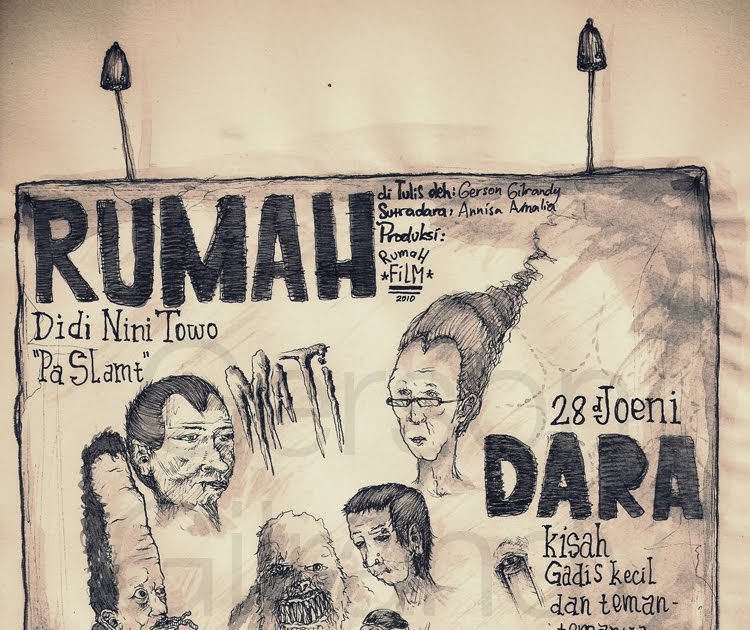 RUMAH
di Tulis oleh: Gerson Gilrandy
Sutradara: Annisa Amalia
Produksi:
RumaH
*FiLM*
2010
Didi Nini Towo
"Pa SLamt"
MATi
28 d Joeni
DARA
kisah
Gadis kecil
dan teman-
temannya